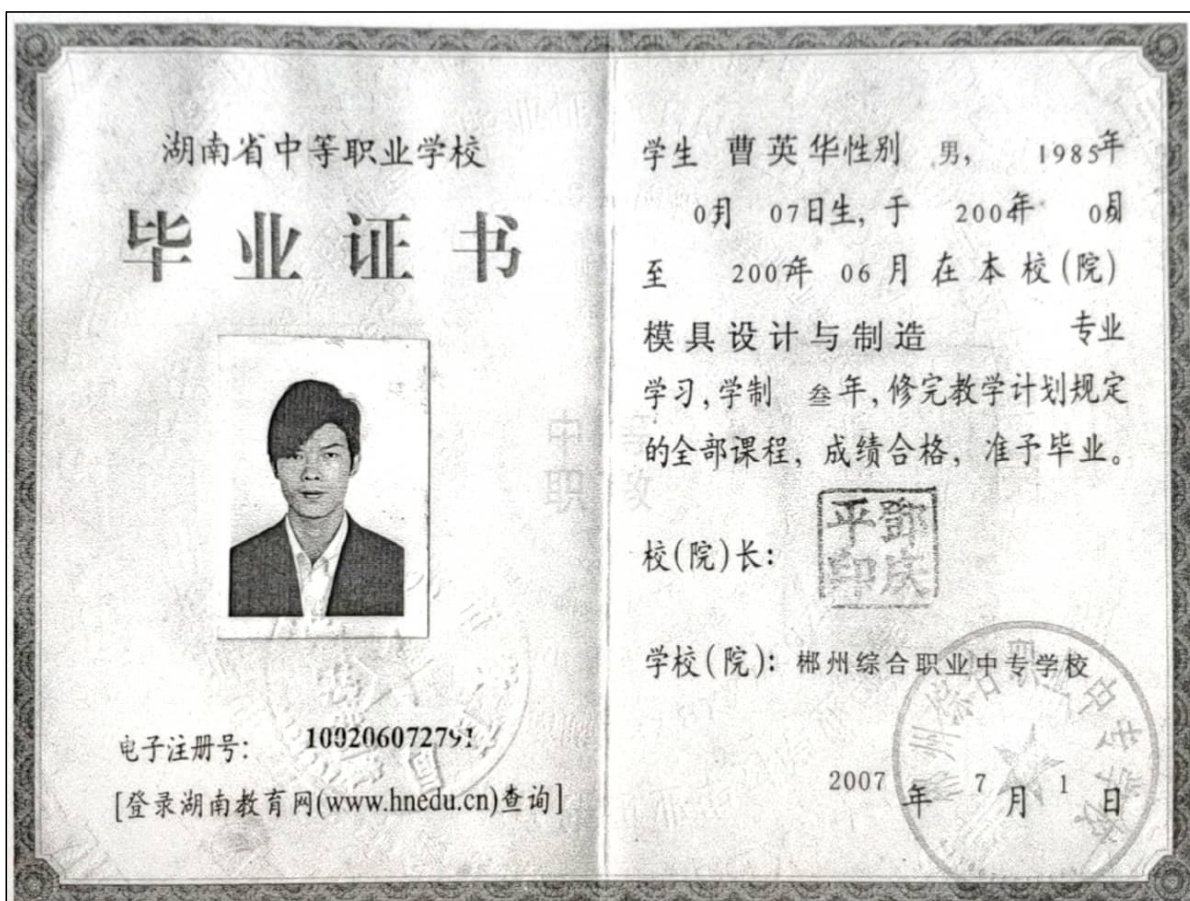 湖南省中等职业学校
毕业证书
电子注册号：
[登录湖南教育网(www.hnedu.cn)查询]
学生 曹英华性别 男， 1985年
07日生，于
至 06月在本校(院)
模具设计与制造 专业
学习，学制 叁年，修完教学计划规定
的全部课程，成绩合格，准予毕业。
校(院)长：
平邓
印庆
学校(院)：郴州综合职业中专学校
2007年7月1日
中等
职教